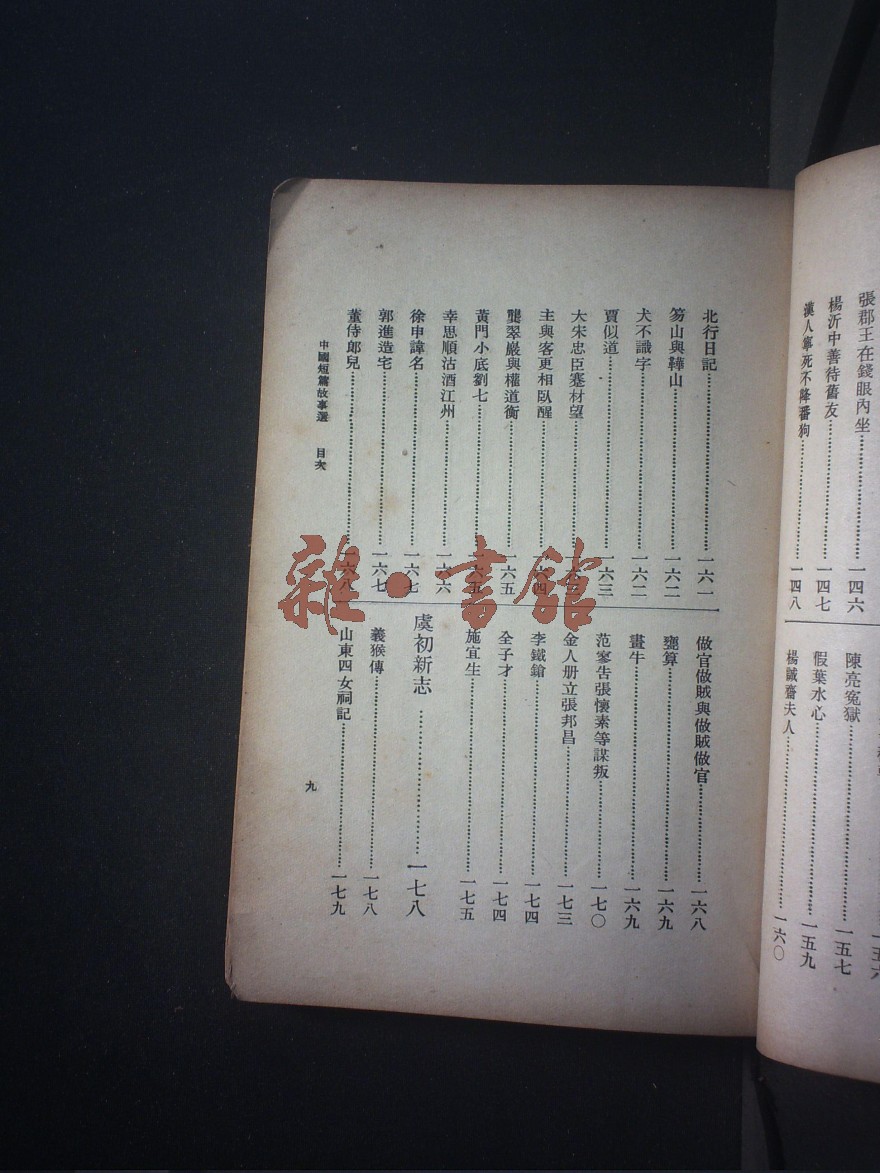 張郡王在錢眼內坐 一四六
楊沂中善待舊友 一四七
漢人寧死不降番狗 一四八
一五六
陳亮冤獄 一五七
假葉水心 一五九
楊誠齋夫人 一六〇
北行日記 一六一
笏山與鞾山 一六二
犬不識字 一六二
賈似道 一六三
大宋忠臣蹇材望
主與客更相臥醒 一六四
龔翠巖與權道衡 一六五
黃門小底劉七 一六五
幸思順沽酒江州 一六六
徐申諱名 一六七
郭進造宅 一六七
董侍郎兒 一六八
做官做賊與做賊做官 一六八
甕算 一六九
畫牛 一六九
范寥告張懷素等謀叛 一七〇
金人册立張邦昌 一七三
李鐵鎗 一七四
全子才 一七四
施宜生 一七五
虞初新志 一七八
義猴傳 一七八
山東四女祠記 一七九
中國短篇故事選 目次
九
雜·書館